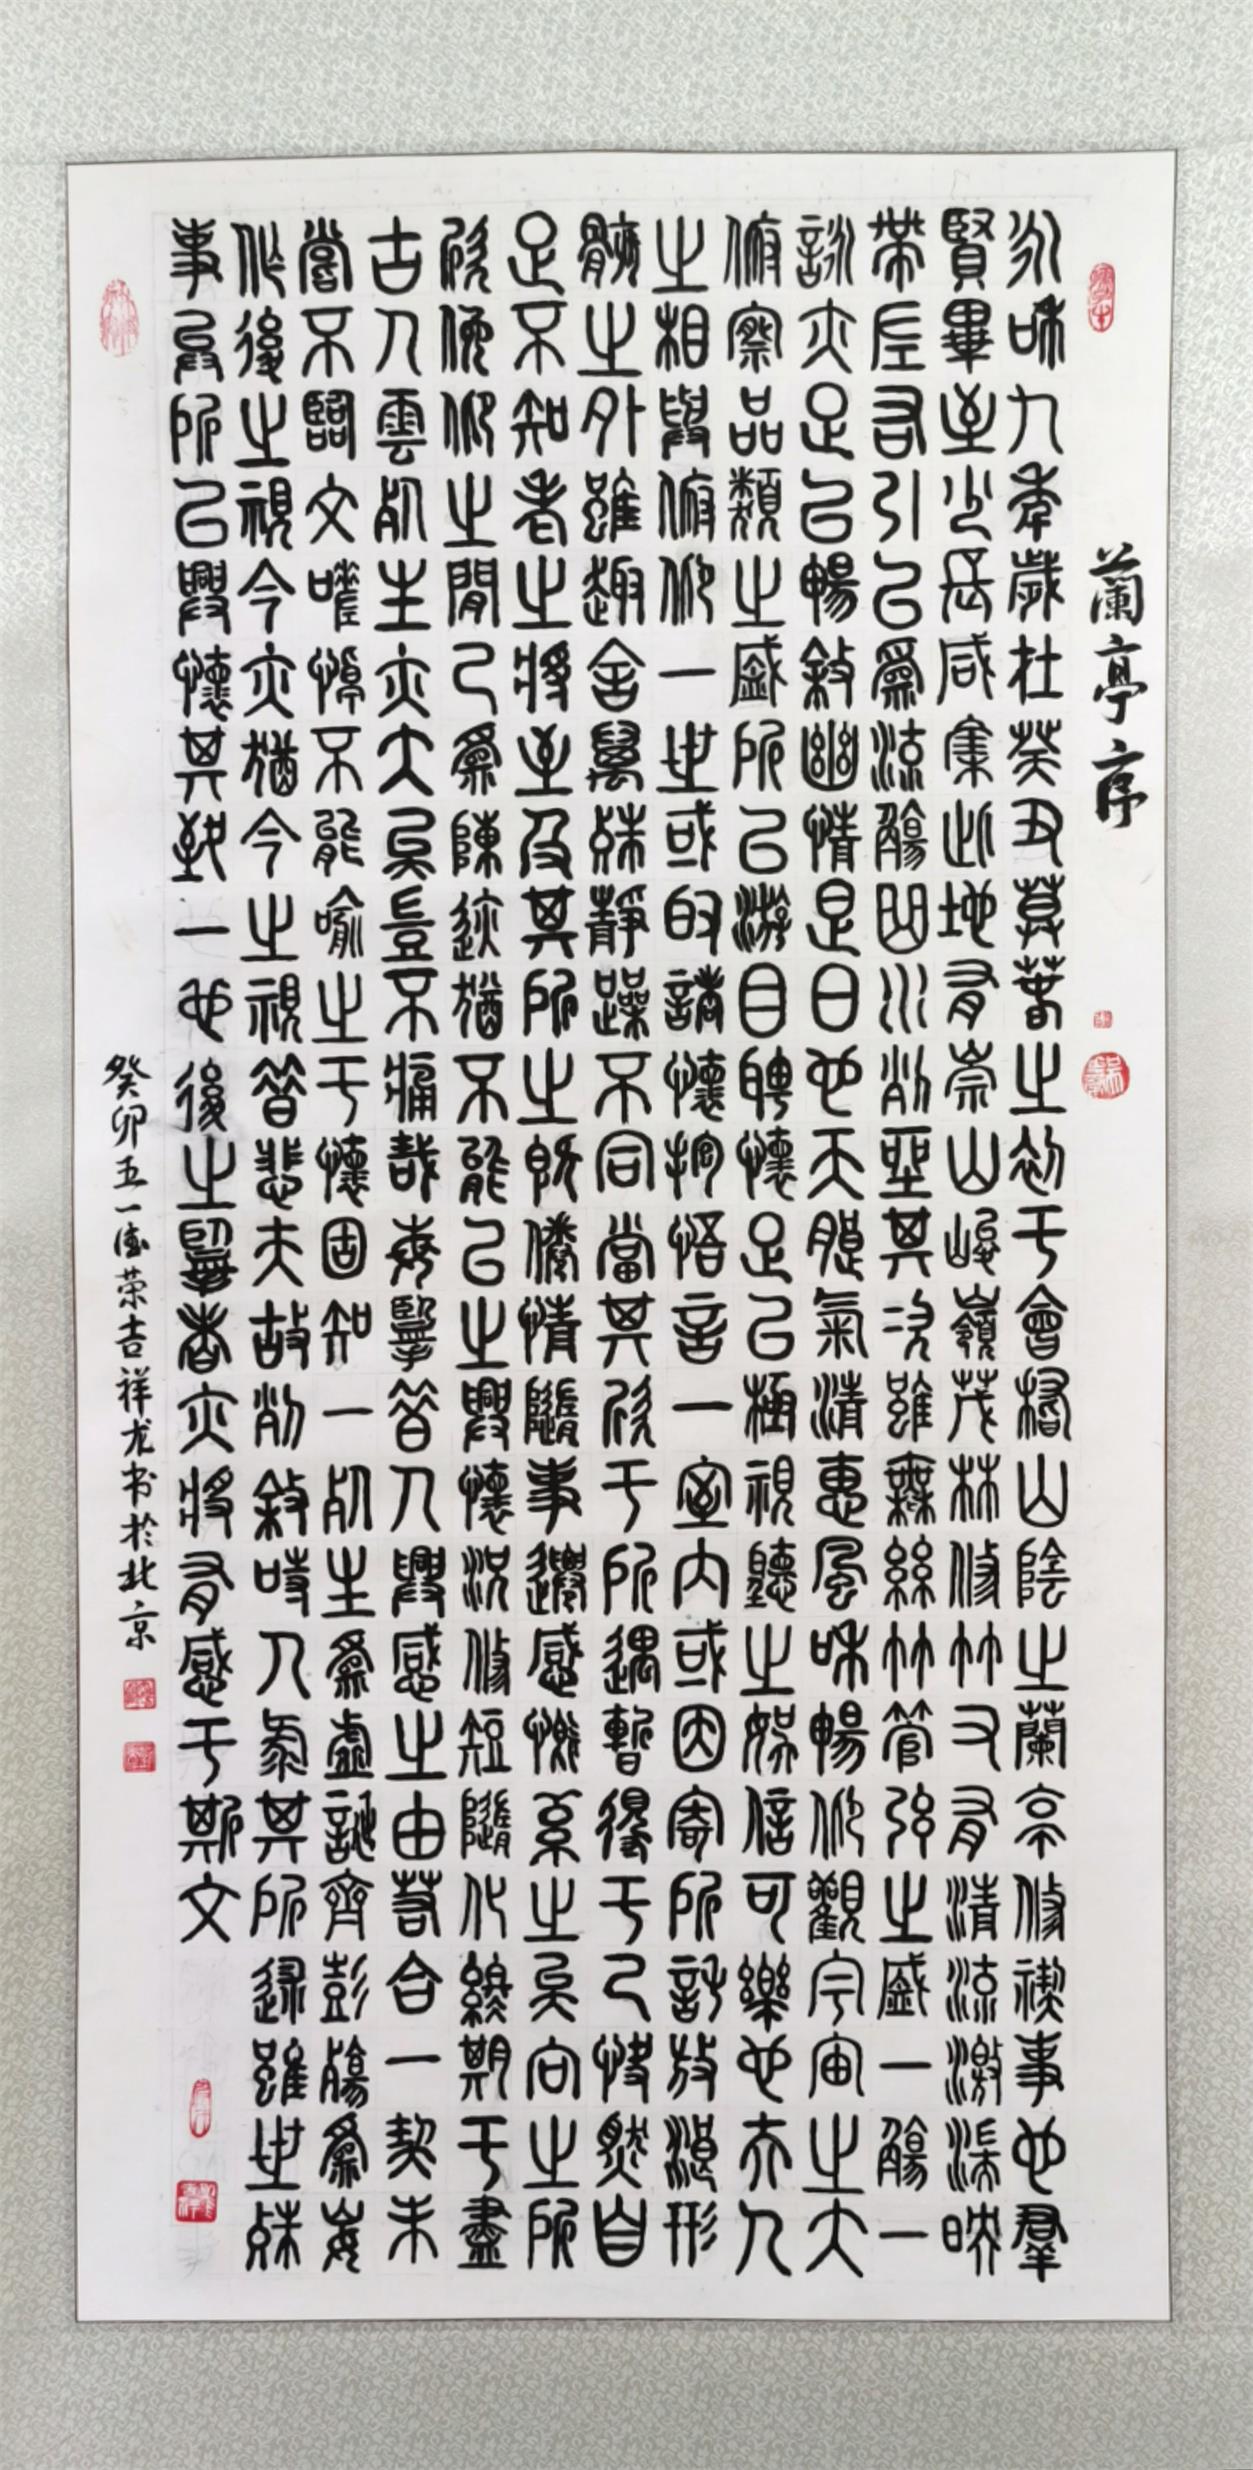 蘭亭序
永和九年歲在癸丑暮春之初于會稽山陰之蘭亭修禊事也羣
賢畢至少長咸集此地有崇山峻嶺茂林修竹又有清流激湍映
帶左右引以為流觴曲水列坐其次雖無絲竹管弦之盛一觴一
詠亦足以暢敘幽情是日也天朗氣清惠風和暢仰觀宇宙之大
俯察品類之盛所以游目騁懷足以極視聽之娛信可樂也夫人
之相與俯仰一世或取諸懷抱悟言一室內或因寄所託放浪形
骸之外雖趣舍萬殊靜躁不同當其欣于所遇暫得于己快然自
足不知老之將至及其所之既倦情隨事遷感慨系之矣向之所
欣俛仰之間已為陳迹猶不能以之興懷況修短隨化終期于盡
古人雲死生亦大矣豈不痛哉每攬昔人興感之由若合一契未
嘗不臨文嗟悼不能喻之于懷固知一死生為虛誕齊彭殤為妄
作後之視今亦猶今之視昔悲夫故列敘時人錄其所述雖世殊
事異所以興懷其致一也後之攬者亦將有感于斯文
癸卯五一荣吉祥龙书於北京